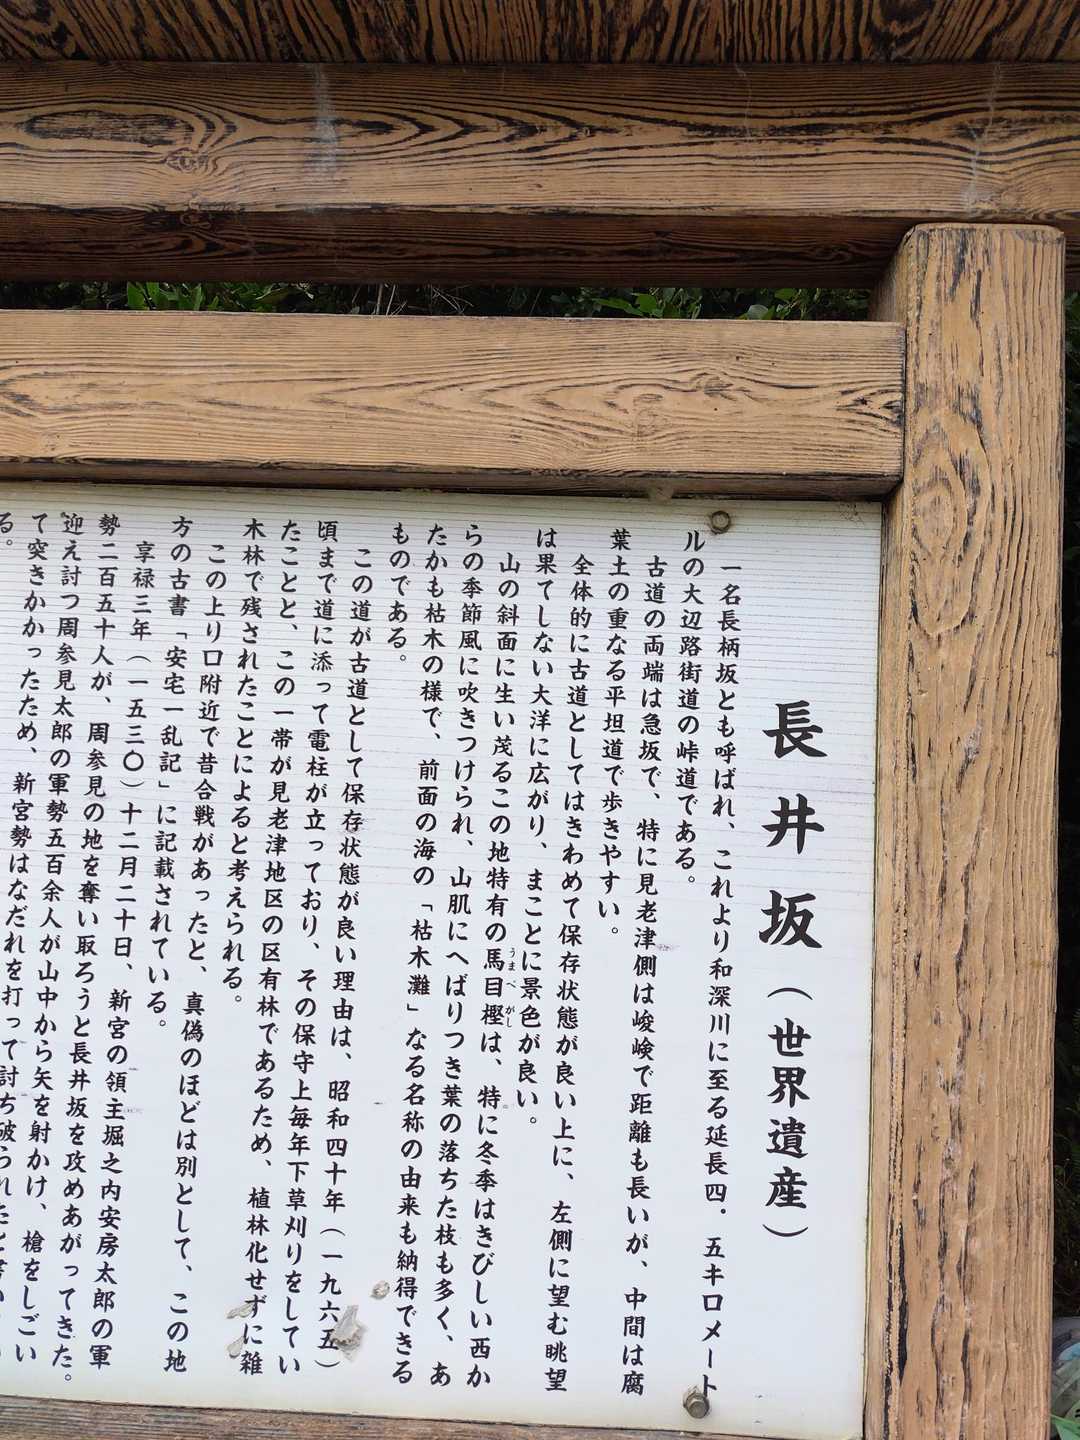 長井坂（世界遺産）
一名長柄坂とも呼ばれ、これより和深川に至る延長四．五キロメート
ルの大辺路街道の峠道である。
古道の両端は急坂で、特に見老津側は峻険で距離も長いが、中間は腐
葉土の重なる平坦道で歩きやすい。
全体的に古道としてはきわめて保存状態が良い上に、左側に望む眺望
は果てしない大洋に広がり、まことに景色が良い。
山の斜面に生い茂るこの地特有の馬目樫は、特に冬季はきびしい西か
うまべがし
らの季節風に吹きつけられ、山肌にへばりつき葉の落ちた枝も多く、あ
たかも枯木の様で、前面の海の「枯木灘」なる名称の由来も納得できる
ものである。
この道が古道として保存状態が良い理由は、昭和四十年（一九六五）
頃まで道に添って電柱が立っており、その保守上毎年下草刈りをしてい
たことと、この一帯が見老津地区の区有林であるため、植林化せずに雑
木林で残されたことによると考えられる。
この上り口附近で昔合戦があったと、真偽のほどは別として、この地
方の古書「安宅一乱記」に記載されている。
享禄三年（一五三〇）十二月二十日、新宮の領主堀之内安房太郎の軍
勢二百五十人が、周参見の地を奪い取ろうと長井坂を攻めあがってきた。
迎え討つ周参見太郎の軍勢五百余人が山中から矢を射かけ、槍をしごい
て突きかかったため、新宮勢はなだれを打って討ち破られたと書い
る。